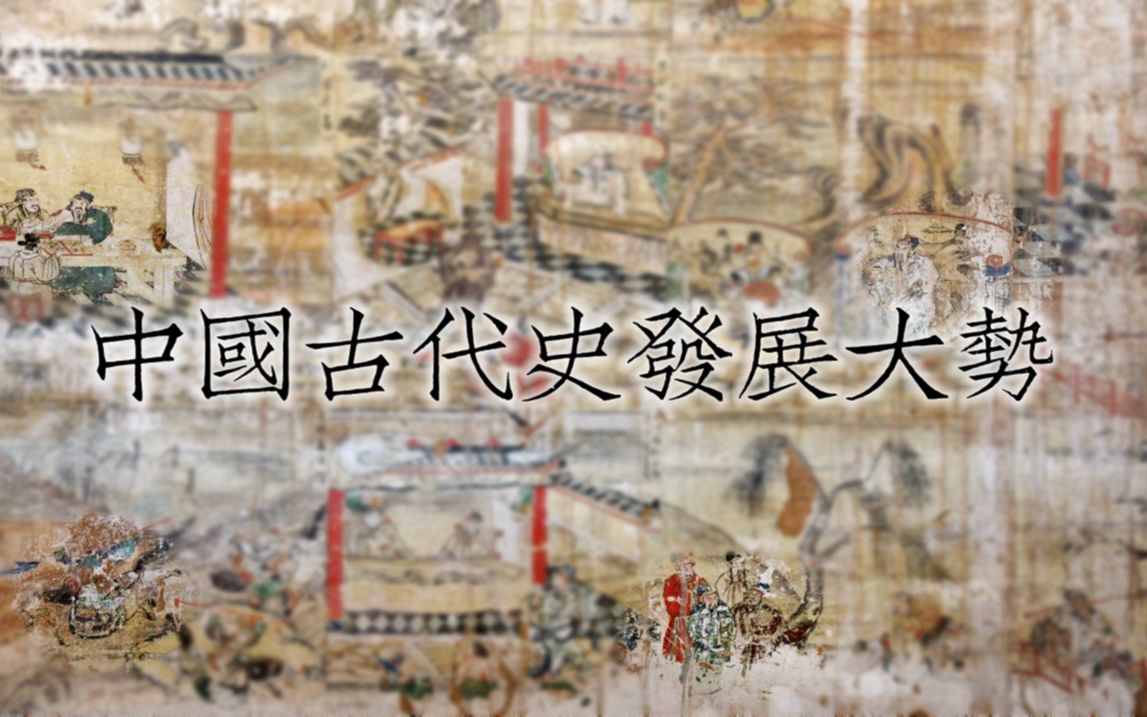 中國古代史發展大勢